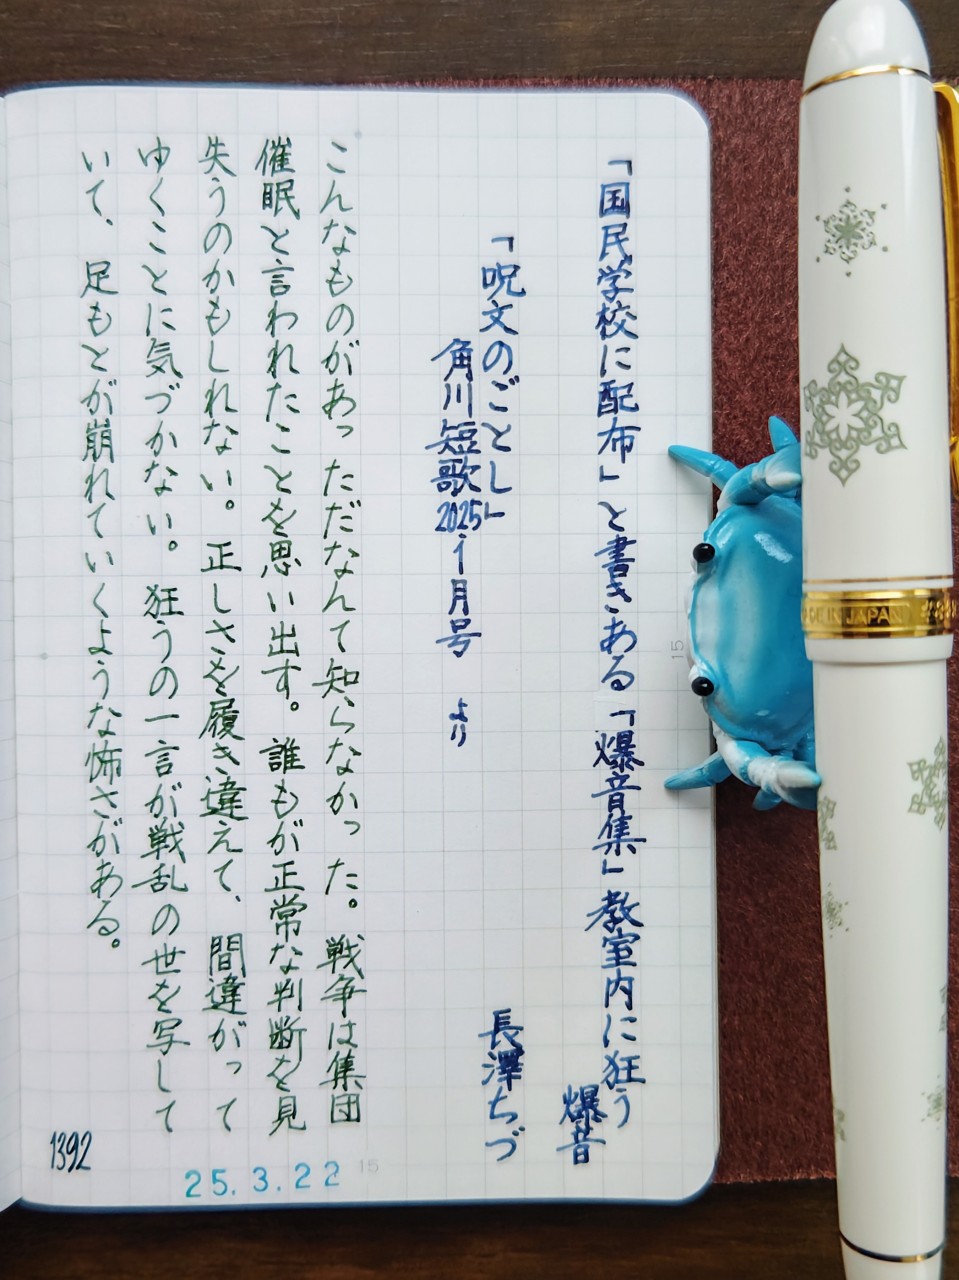 「国民学校に配布」と書きある「爆音集」教室内に狂う
爆音
「呪文のごとし」
長澤ちづ
角川短歌2025年1月号 より
こんなものがあっただなんて知らなかった。戦争は集団
催眠と言われたことを思い出す。誰もが正常な判断を見
失うのかもしれない。正しさを履き違えて、間違がって
ゆくことに気づかない。狂うの一言が戦乱の世を写して
いて、足もとが崩れていくような怖さがある。
1392
25.3.22
15
15
DE IN JAPAN